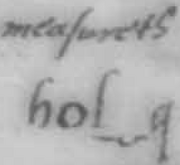 measurets
hol_q